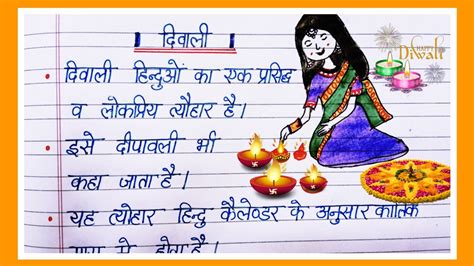 दिवाली
HAPPY
Diwali
• दिवाली हिन्दुओं का एक प्रसिद्ध
व लोकप्रिय त्यौहार है।
• इसे दीपावली भी
कहा जाता है।
• यह त्योहार हिन्दु कैलेण्डर के अनुसार कार्तिक
में होता है।